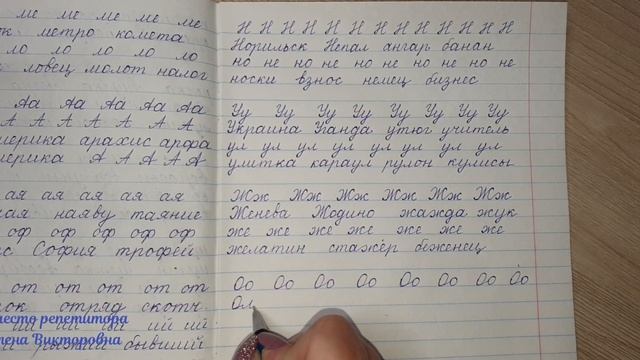 ме ме ме ме ме
метро комета
ло ло ло ло ло
ловец молот налог
Аа Аа Аа Аа Аа
А А А А А А
арахис арфа
А А А А А
ая ая ая ая ая
наяву таяние
оф оф оф оф оф
София трофей
от от от от от
отряд скотч
ий ий ий ий ий
рыжий бывший
место репетитора
Викторовна
Н Н Н Н Н Н Н Н Н Н Н Н Н
Норильск Непал ангар банан
но не но не но не но не но не
носки взнос немец бизнес
Уу Уу Уу Уу Уу Уу Уу Уу
Украина Уганда утюг учитель
ул ул ул ул ул ул ул ул
улитка караул рулон кулисы
Жж Жж Жж Жж Жж Жж
Женева Жодино жажда жук
же же же же же же же
желатин стажёр беженец
Оо Оо Оо Оо Оо Оо Оо Оо
Ол